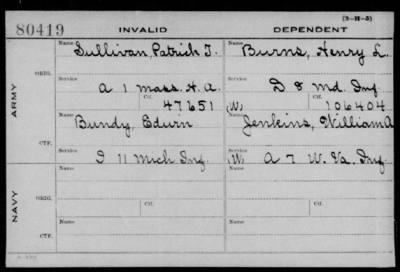 (3-H-5)
80419 INVALID DEPENDENT
Name Name
Sullivan, Patrick J. Burns, Henry L.
ORIG. Service Service
A 1 Mass. H. A. D 8 Md. Inf.
Ctf. Ctf.
47651 (W) 106404
ARMY
Name Name
Bundy, Edwin Jenkins, William A
CTF. Service Service
I 11 Mich Inf. (W) A 7 W. Va. Inf.
Name Name
ORIG. Service Service
Ctf. Ctf.
NAVY
Name Name
CTF. Service Service